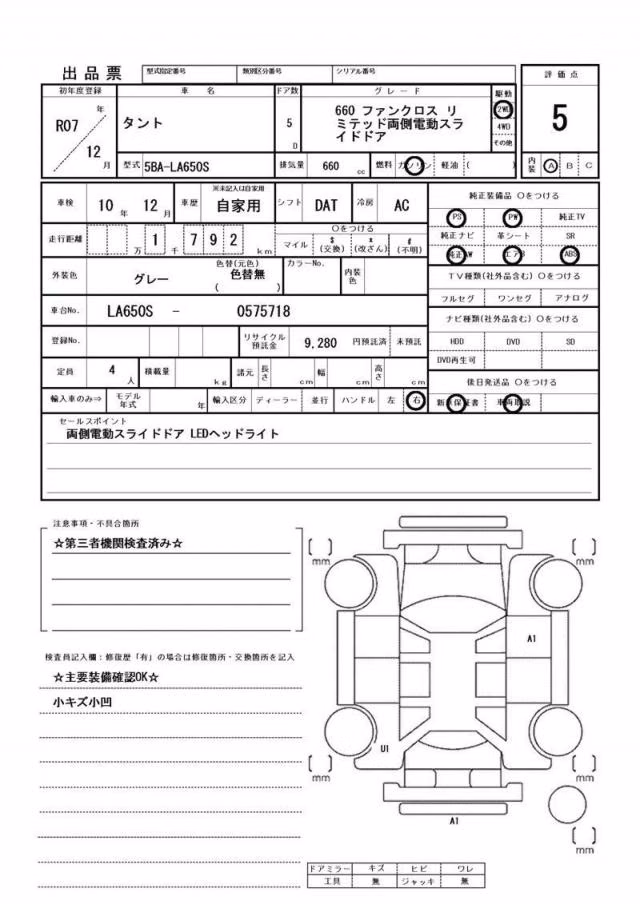 出品票 型式指定番号 類別区分番号 シリアル番号
初年度登録 車名 ドア数 グレード 駆動 評価点
R07 年 12 月
タント
5 D
660 ファンクロス リ
ミテッド両側電動スラ
イドドア
2WD
4WD
その他
5
型式 5BA-LA650S 排気量 660 cc 燃料 ガソリン 軽油 ( ) 内装 A B C
車検 10 年 12 月 車歴 ※未記入は自家用 自家用 シフト DAT 冷房 AC
走行距離 万 1 千 7 9 2 km ○をつける マイル $ (交換) x (改ざん) # (不明)
外装色 グレー 色替(元色) 色替無 ( ) カラーNo. 内装色
車台No. LA650S - 0575718
登録No. リサイクル預託金 9,280 円預託済 未預託
定員 4 人 積載量 kg 諸元 長さ cm 幅 cm 高さ cm
輸入車のみ⇒ モデル年式 年 輸入区分 ディーラー 並行 ハンドル 左 右
純正装備品 ○をつける
PS PW 純正TV
純正ナビ 革シート SR
純正AW エアB ABS
TV種類(社外品含む) ○をつける
フルセグ ワンセグ アナログ
ナビ種類(社外品含む) ○をつける
HDD DVD SD
DVD再生可
後日発送品 ○をつける
新車保証書 車両取説
セールスポイント
両側電動スライドドア LEDヘッドライト
注意事項・不具合箇所
☆第三者機関検査済み☆
検査員記入欄：修復歴「有」の場合は修復箇所・交換箇所を記入
☆主要装備確認OK☆
小キズ小凹
mm
mm
A1
U1
mm
mm
A1
mm
ドアミラー キズ ヒビ ワレ
工具 無 ジャッキ 無